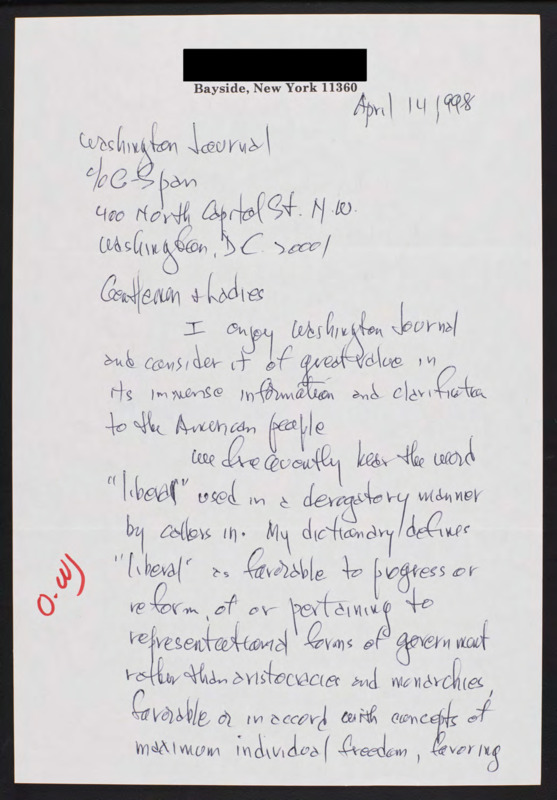 Bayside, New York 11360
April 14 1998
Washington Journal
c/o C-Span
400 North Capitol St. N.W.
Washington, D C. 20001
Gentlemen & Ladies
I enjoy Washington Journal
and consider it of great value in
its immense information and clarification
to the American people
We frequently hear the word
"liberal" used in a derogatory manner
by callers in. My dictionary defines
"liberal" as favorable to progress or
reform, of or pertaining to
representational forms of government
rather than aristocracies and monarchies,
favorable or in accord with concepts of
maximum individual freedom, favoring
O.W)